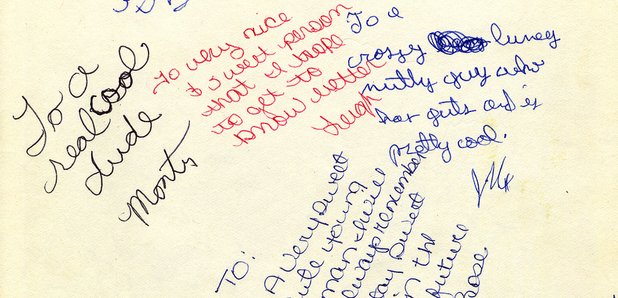 To a
real cool
dude
Monty
To very nice
& sweet person
that I hope
to get to
know better
Leigh
To a
crazzy luney
nutty guy who
has guts and is
pretty cool.
TO:
A very sweet
cute young
man
always remember
stay sweet
in the
future